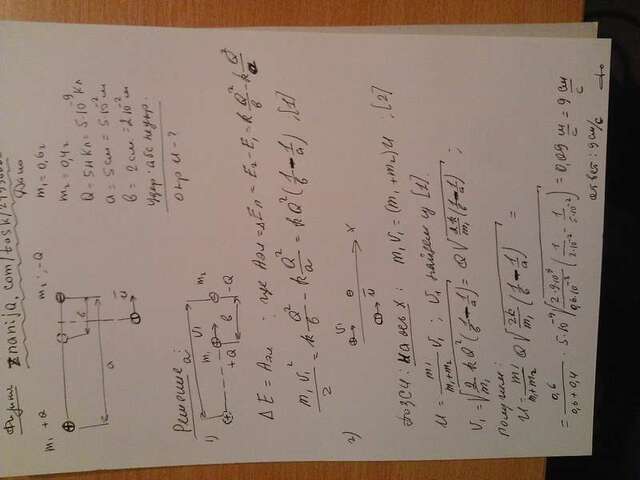 Физика znanija.com/task/
Дано
m₁ +Q m₂; -Q
m₁ = 0,6 г
m₂ = 0,4 г
Q = 5 нКл = 5·10⁻⁹ Кл
a = 5 см = 5·10⁻² м
в = 2 см = 2·10⁻² м
удар: абс неупр.
опр u - ?
a
в
u
Решение:
1) a
m₁ V₁ m₂
+Q в -Q
ΔE = Aэл ; где Aэл = ΔEп = E₂ - E₁ = kQ²/в - kQ²/a
m₁V₁²/2 = kQ²/в - kQ²/a = kQ²(1/в - 1/a) ; [1]
2)
V₁ u x
по ЗСИ: на ось x: m₁V₁ = (m₁+m₂)u ; [2]
u = m₁/(m₁+m₂) V₁ ; V₁ найдем из [1].
V₁ = √(2/m₁ kQ²(1/в - 1/a)) = Q√(2k/m₁(1/в - 1/a)) ;
получим:
u = m₁/(m₁+m₂) Q√(2k/m₁(1/в - 1/a)) =
= 0,6/(0,6+0,4) · 5·10⁻⁹√(2·9·10⁹/0,6·10⁻³(1/2·10⁻² - 1/5·10⁻²)) = 0,09 м/с = 9 см/с
ответ: 9 см/с